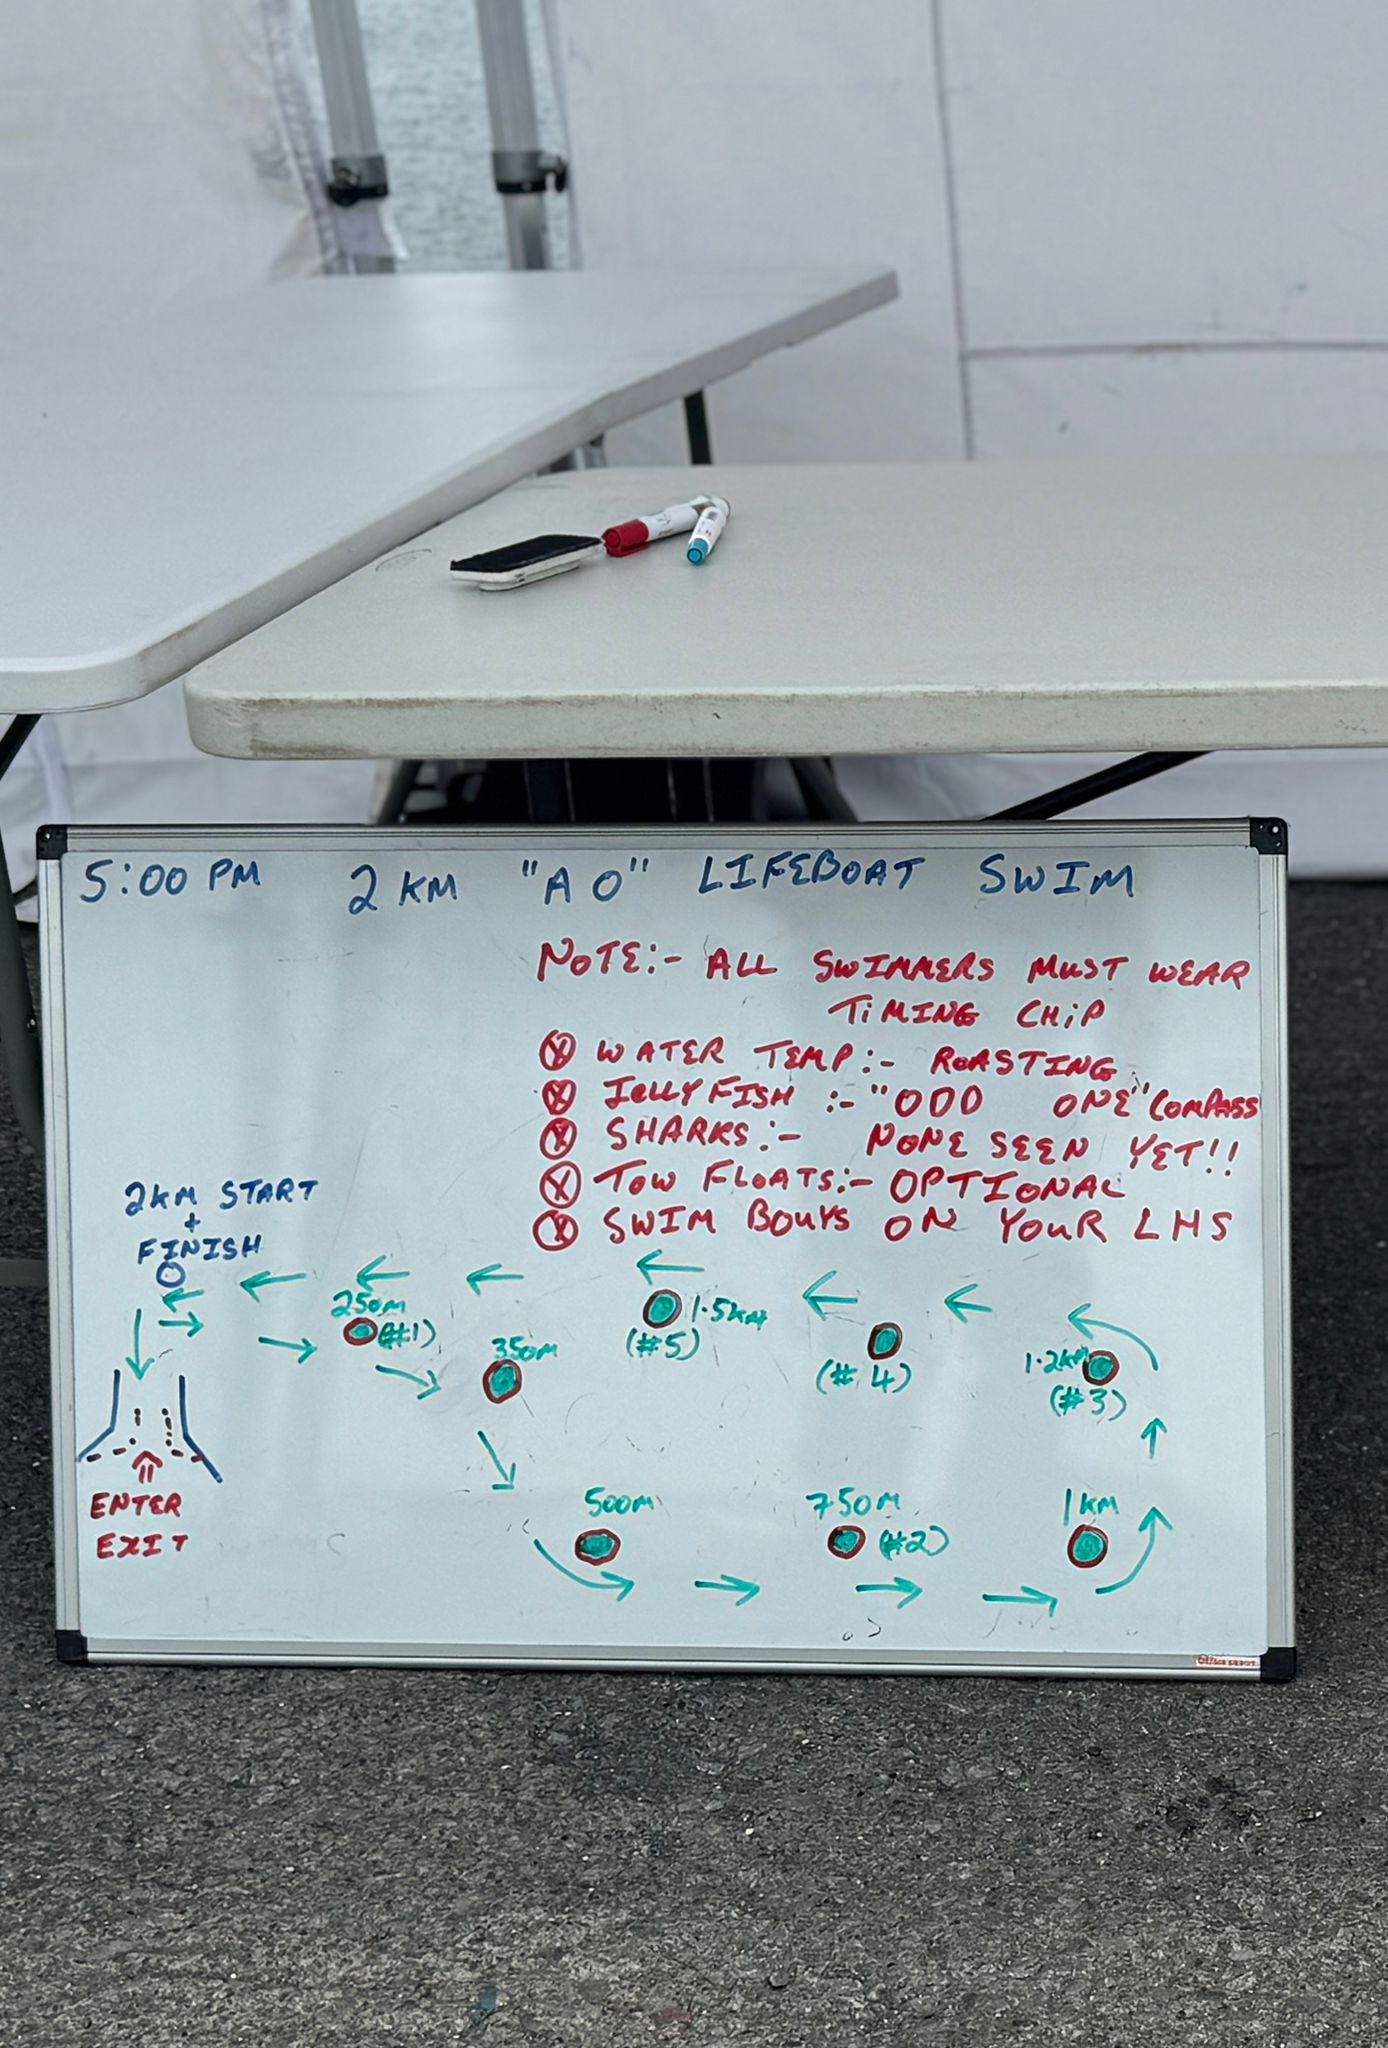 5:00 PM 2 KM "A O" LIFEBOAT SWIM
NOTE:- ALL SWIMMERS MUST WEAR
TIMING CHIP
WATER TEMP:- ROASTING
JELLYFISH :- "ODD ONE" COMPASS
SHARKS:- NONE SEEN YET!!
TOW FLOATS:- OPTIONAL
SWIM BOUYS ON YOUR LHS
2KM START
+
FINISH
250M
(#1)
350M
1.5KM
(#5)
(#4)
1.2KM
(#3)
ENTER
EXIT
500M
750M
(#2)
1KM
Office DEPOT